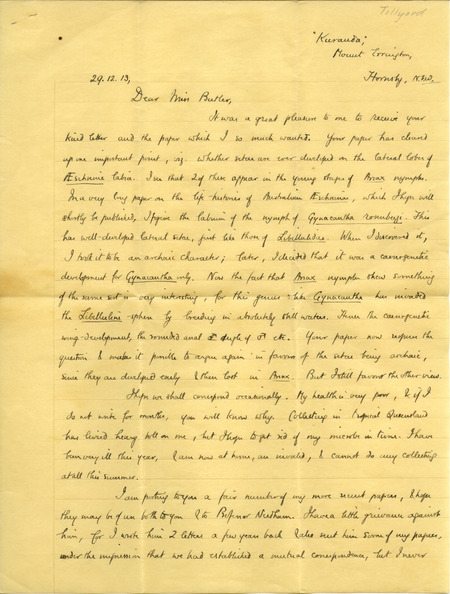 Tillyard
"Kuranda,"
Mount Errington,
29.12.13, Hornsby, N.S.W.
Dear Miss Butler,
It was a great pleasure to me to receive your
kind letter and the paper which I so much wanted. Your paper has cleared
up one important point, viz. whether setae are ever developed on the lateral lobes of
Aeschnine labia. I see that 2 of these appear in the young stages of Anax nymphs.
In a very long paper on the life-histories of Australian Aeschninae, which I hope will
shortly be published, I figure the labium of the nymph of Gynacantha rosenbergi. This
has well-developed lateral setae, just like those of Libellulidae. When I discovered it,
I took it to be an archaic character; later, I decided that it was a caenogenetic
development for Gynacantha only. Now the fact that Anax nymphs show something
of the same sort is very interesting, for this genus like Gynacantha has invaded
the Libelluline sphere by breeding in absolutely still waters. Hence the caenogenetic
wing-development, the rounded anal angle of ♂ etc. Your paper now reopens the
question & makes it possible to argue again in favour of the setae being archaic,
since they are developed early & then lost in Anax. But I still favour the other view.
I hope we shall correspond occasionally. My health is very poor, & if I
do not write for months, you will know why. Collecting in tropical Queensland
has levied heavy toll on me, but I hope to get rid of my microbe in time. I have
been very ill this year, & am now at home, an invalid, & cannot do any collecting
at all this summer.
I am posting to you a fair number of my more recent papers, & hope
they may be of use both to you & to Professor Needham. I have a little grievance against
him, for I wrote him 2 letters a few years back & also sent him some of my papers,
under the impression that we had established a mutual correspondence, but I never